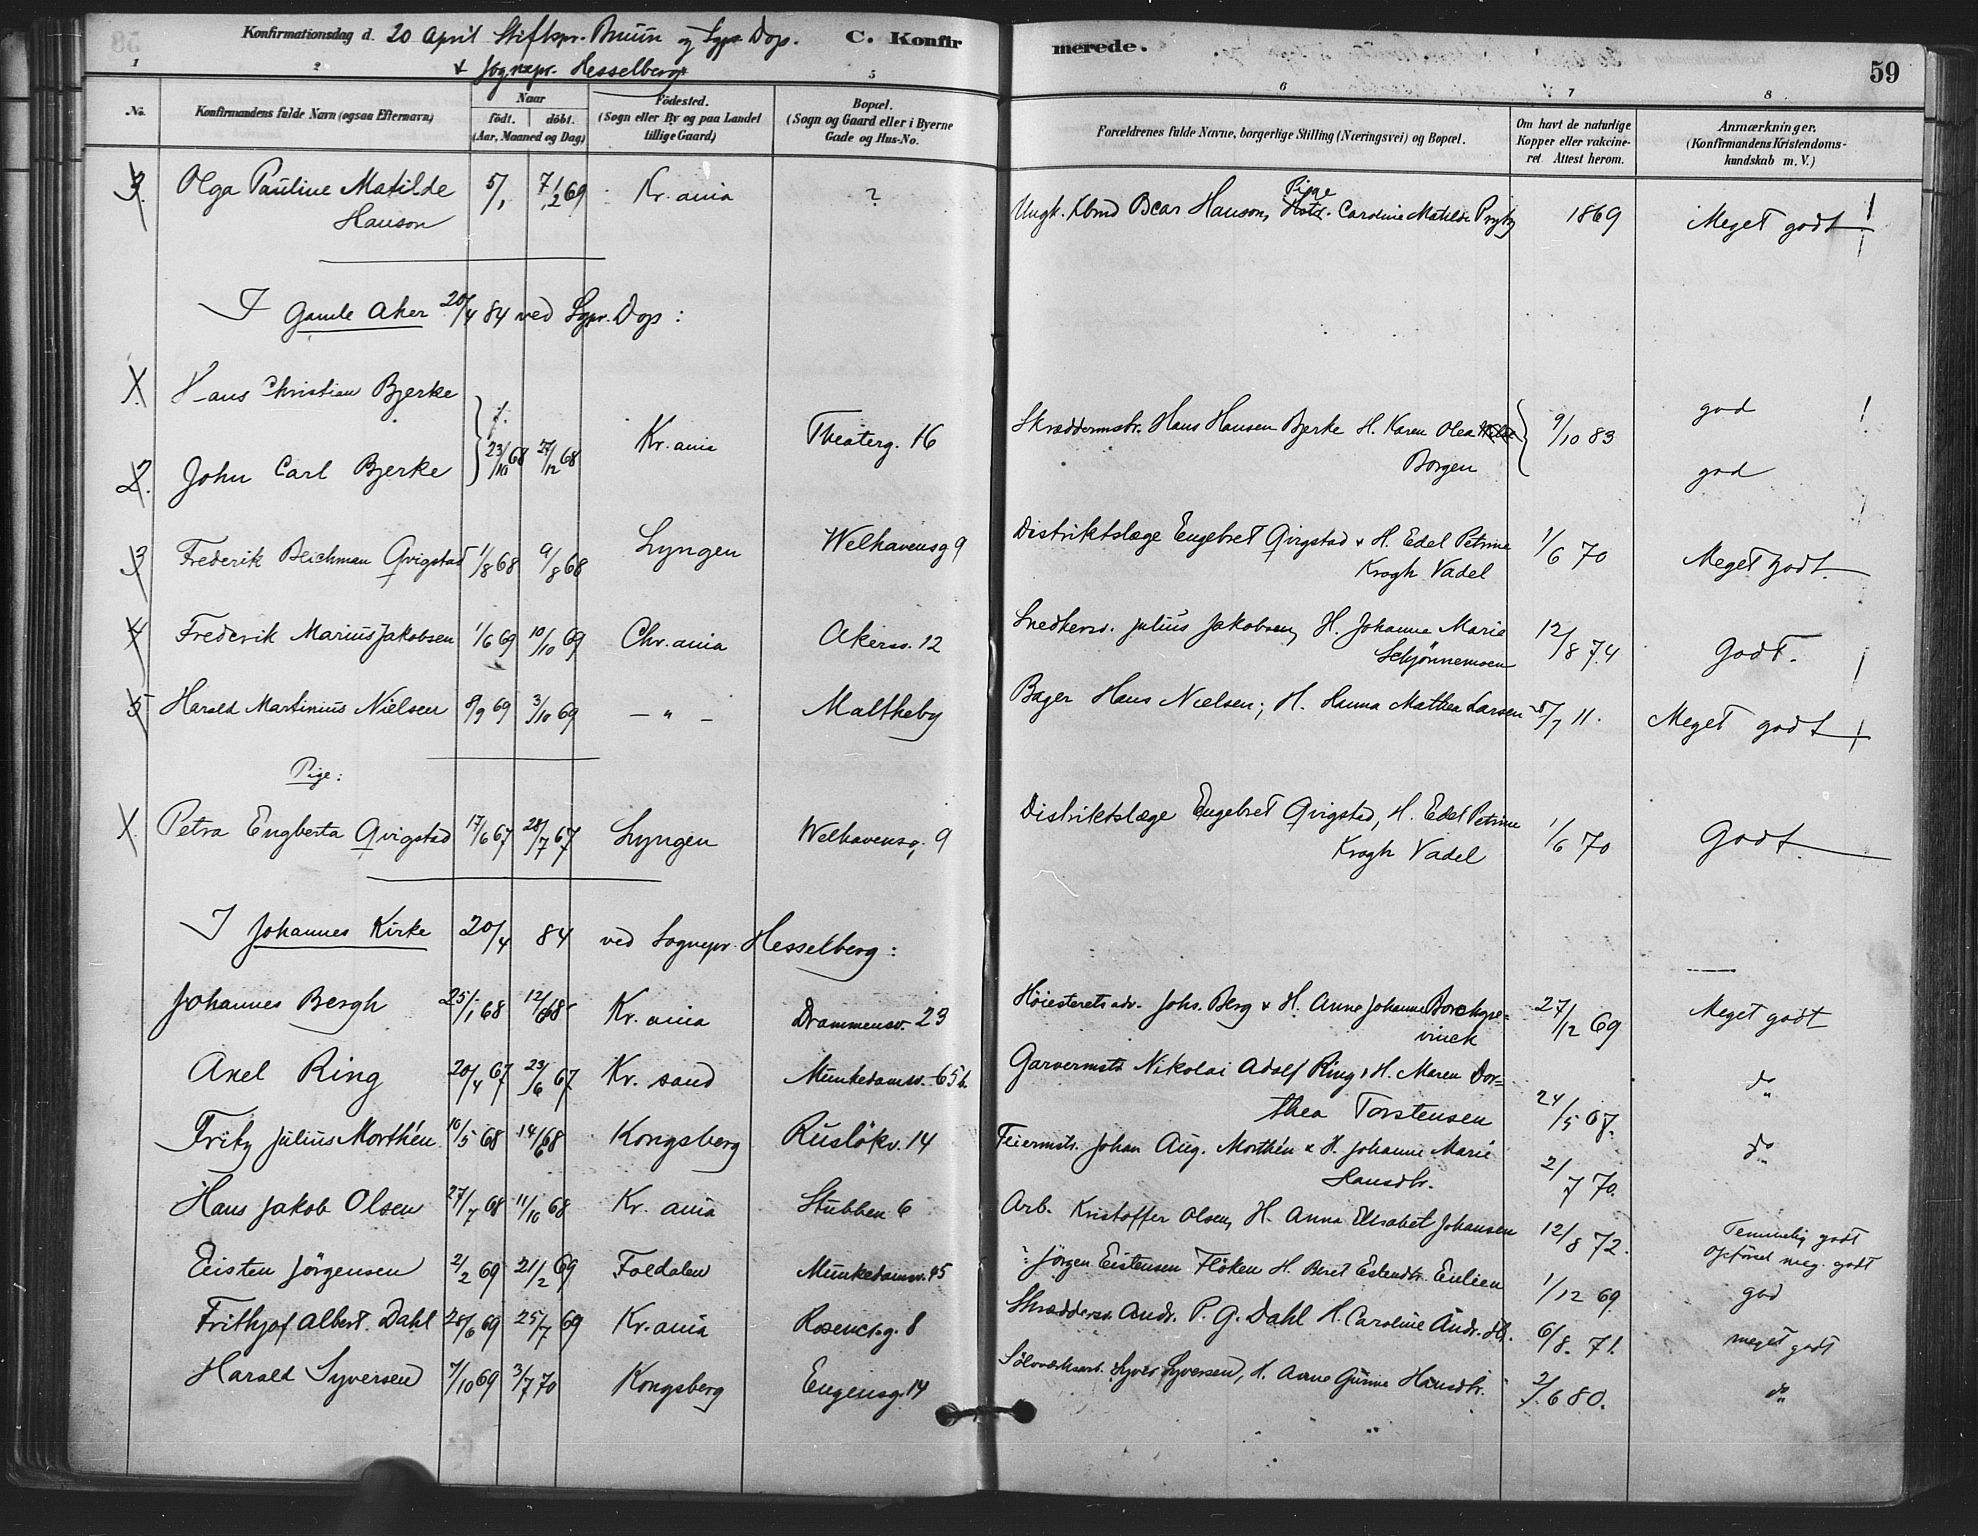 Konfirmationsdag d. 20 April Stiftspr. Bruun og Sgpr Dop. C. Konfir merede. 59
& Sognepr. Hesselberg
1 2 5 6 7 8
No. Konfirmandens fulde Navn (ogsaa Efternavn) Naar født. døbt. (Aar, Maaned og Dag) Fødested. (Sogn eller By og paa Landet tillige Gaard) Bopæl. (Sogn og Gaard eller i Byerne Gade og Hus-No. Forældrenes fulde Navne, borgerlige Stilling (Næringsvei) og Bopæl. Om havt de naturlige Kopper eller vakcineret. Attest herom. Anmærkninger. (Konfirmandens Kristendomskundskab m. V.)
3. Olga Pauline Matilde 5/1 7/12 69 Kr.ania ? Ungk. Kbmd Bcar Hanson, Pige Caroline Matilde Pryty 1869 Meget godt
Hanson
I Gamle Aker 20/4 84 ved Sgpr. Dop:
1. Hans Christian Bjerke Skræddermstr. Hans Hansen Bjerke H. Karen Olea 9/10 83 god
Borgen
2. John Carl Bjerke 23/10 68 27/12 68 Kr.ania Theaterg. 16 god
3 Frederik Beichman Qvigstad 1/8 68 9/8 68 Lyngen Welhavensg 9 Distriktslæge Engebret Qvigstad & H. Edel Petrine 1/6 70 Meget godt.
Krogh Vadel
4 Frederik Marius Jakobsen 1/6 69 10/10 69 Chr.ania Akersv. 12 Snedkersv. Julius Jakobsen, H. Johanne Marie 12/8 74 Godt.
Schjønnemoen
5 Harald Martinius Nielsen 8/9 69 3/10 69 — " — Maltheby Bager Hans Nielsen; H. Hanna Mathea Larsen 5/7 11. Meget godt
Pige:
1. Petra Engberta Qvigstad 17/6 67 28/7 67 Lyngen Welhavensg. 9 Distriktslæge Engebret Qvigstad, H. Edel Petrine 1/6 70 Godt.
Krogh Vadel
I Johannes Kirke 20/4 84 ved Sognepr. Hesselberg:
Johannes Bergh 25/1 68 12/6 68 Kr.ania Drammensv. 23 Høiesteretsadv. Johs. Berg & H. Anne Johanne Borchgre= 27/12 69 Meget godt
vinck
Axel Ring 20/4 67 23/6 67 Kr. sand Munkedamsv. 65b. Garvermstr Nikolai Adolf Ring, H. Maren Dor= 24/5 67. do
thea Torstensen
Fritz Julius Morthén 10/5 68 14/6 68 Kongsberg Rusløkv. 14 Feiermstr. Johan Aug. Morthén & H. Johanne Marie 2/7 70. do
Hansdtr.
Hans Jakob Olsen 27/7 68 11/10 68 Kr. ania Stubben 6 Arb. Kristoffer Olsen, H. Anna Elisabet Johansen 12/8 72. Temmelig godt
Opførsel meg. godt
Eisten Jørgensen 2/2 69 21/2 69 Foldalen Munkedamsv. 45 Jørgen Eistensen Fløken H. Beret Estendtr. Eulien 1/12 69. god
Frithjof Albert. Dahl 28/6 69 25/7 69 Kr.ania Rosencr.g. 8 Skræddersv. Andr. P. G. Dahl H. Caroline Andr.dtr. 6/8. 71. meget godt
Harald Syversen 7/10 69 3/7 70 Kongsberg Eugensg. 14 Sølvverksarb. Syver Syversen, H. Anne Gurine Hansdtr. 2/6 80. do